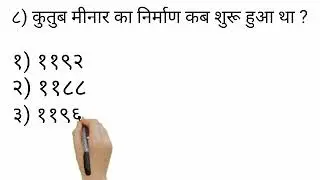 ८) कुतुब मीनार का निर्माण कब शुरू हुआ था ?
१) ११९२
२) ११८८
३) ११९६